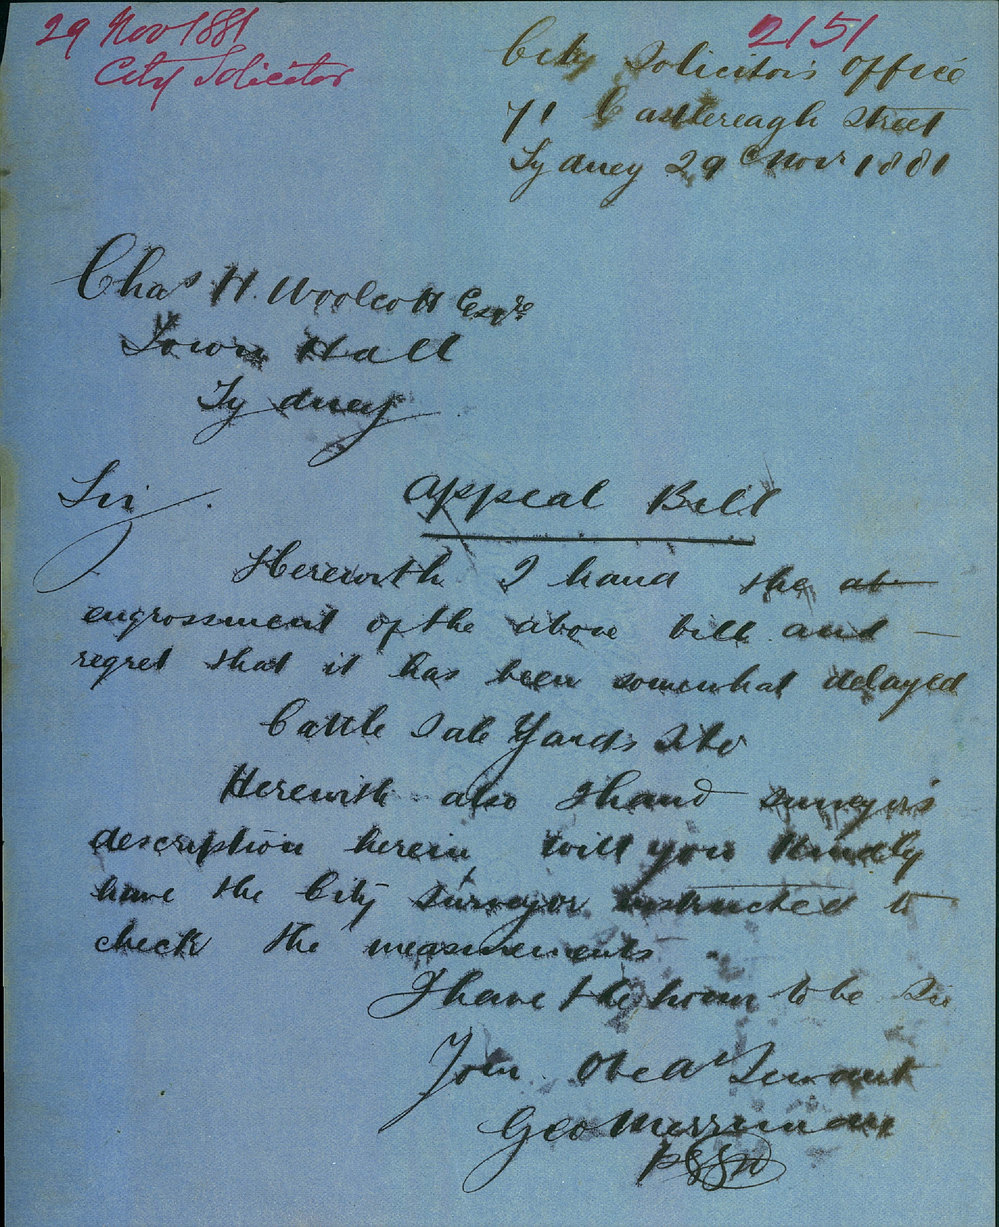 29 Nov 1881
City Solicitor
2151
City Solicitor's Office
71 Castlereagh Street
Sydney 29th Novr 1881
Chas H. Woolcott Esqre
Town Hall
Sydney
Sir
Appeal Bill
Herewith I hand the ab
engrossment of the above bill and
regret that it has been somewhat delayed
Cattle Sale Yards Site
Herewith also I hand surveyor's
description herein, will you kindly
have the City Surveyor instructed to
check the measurements
I have the honor to be Sir
Your Obedt Servant
Geo Merriman